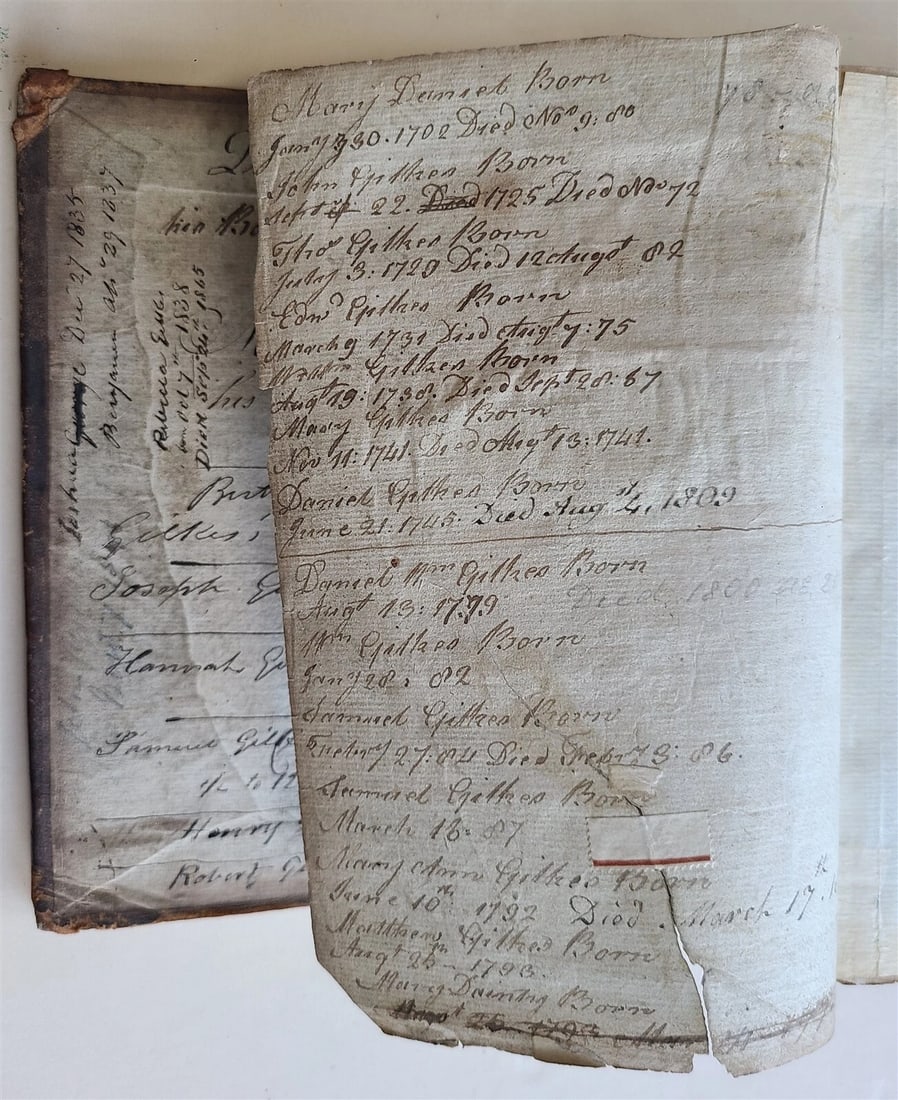 Mary Daniel Born
Jany 30. 1702 Died Nov 9: 80
John Gilkes Born
Sept 22. Died 1725 Died Nov 72
Thos Gilkes Born
July 3: 1729 Died 12 Augst 82
Edwd Gilkes Born
March 9 1731 Died Augt 7: 75
Gilkes Born
Augt 19: 1738. Died Sept 28: 87
Mary Gilkes Born
Nov 11: 1741. Died Augt 13: 1741.
Daniel Gilkes Born
June 21. 1745. Died Augst 4, 1809
Daniel Wm Gilkes Born
Augt 13: 1779 Died 1800
Wm Gilkes Born
Jany 28: 82
Samuel Gilkes Born
Febry 27: 84 Died Febry 3: 86.
Samuel Gilkes Born
March 16: 87
Mary Ann Gilkes Born
June 10th 1792 Died March 17th
Matthew Gilkes Born
Augt 25th 1793.
Mary Dainty Born
1793
Joshua Decr 27 1835
Benjamin 29 1837
Rebecca
born Oct 7th 1838
Died Sept 24th 1865
his
his
Gilkes,
Joseph
Hannah
Samuel Gilk
Henry
Robert